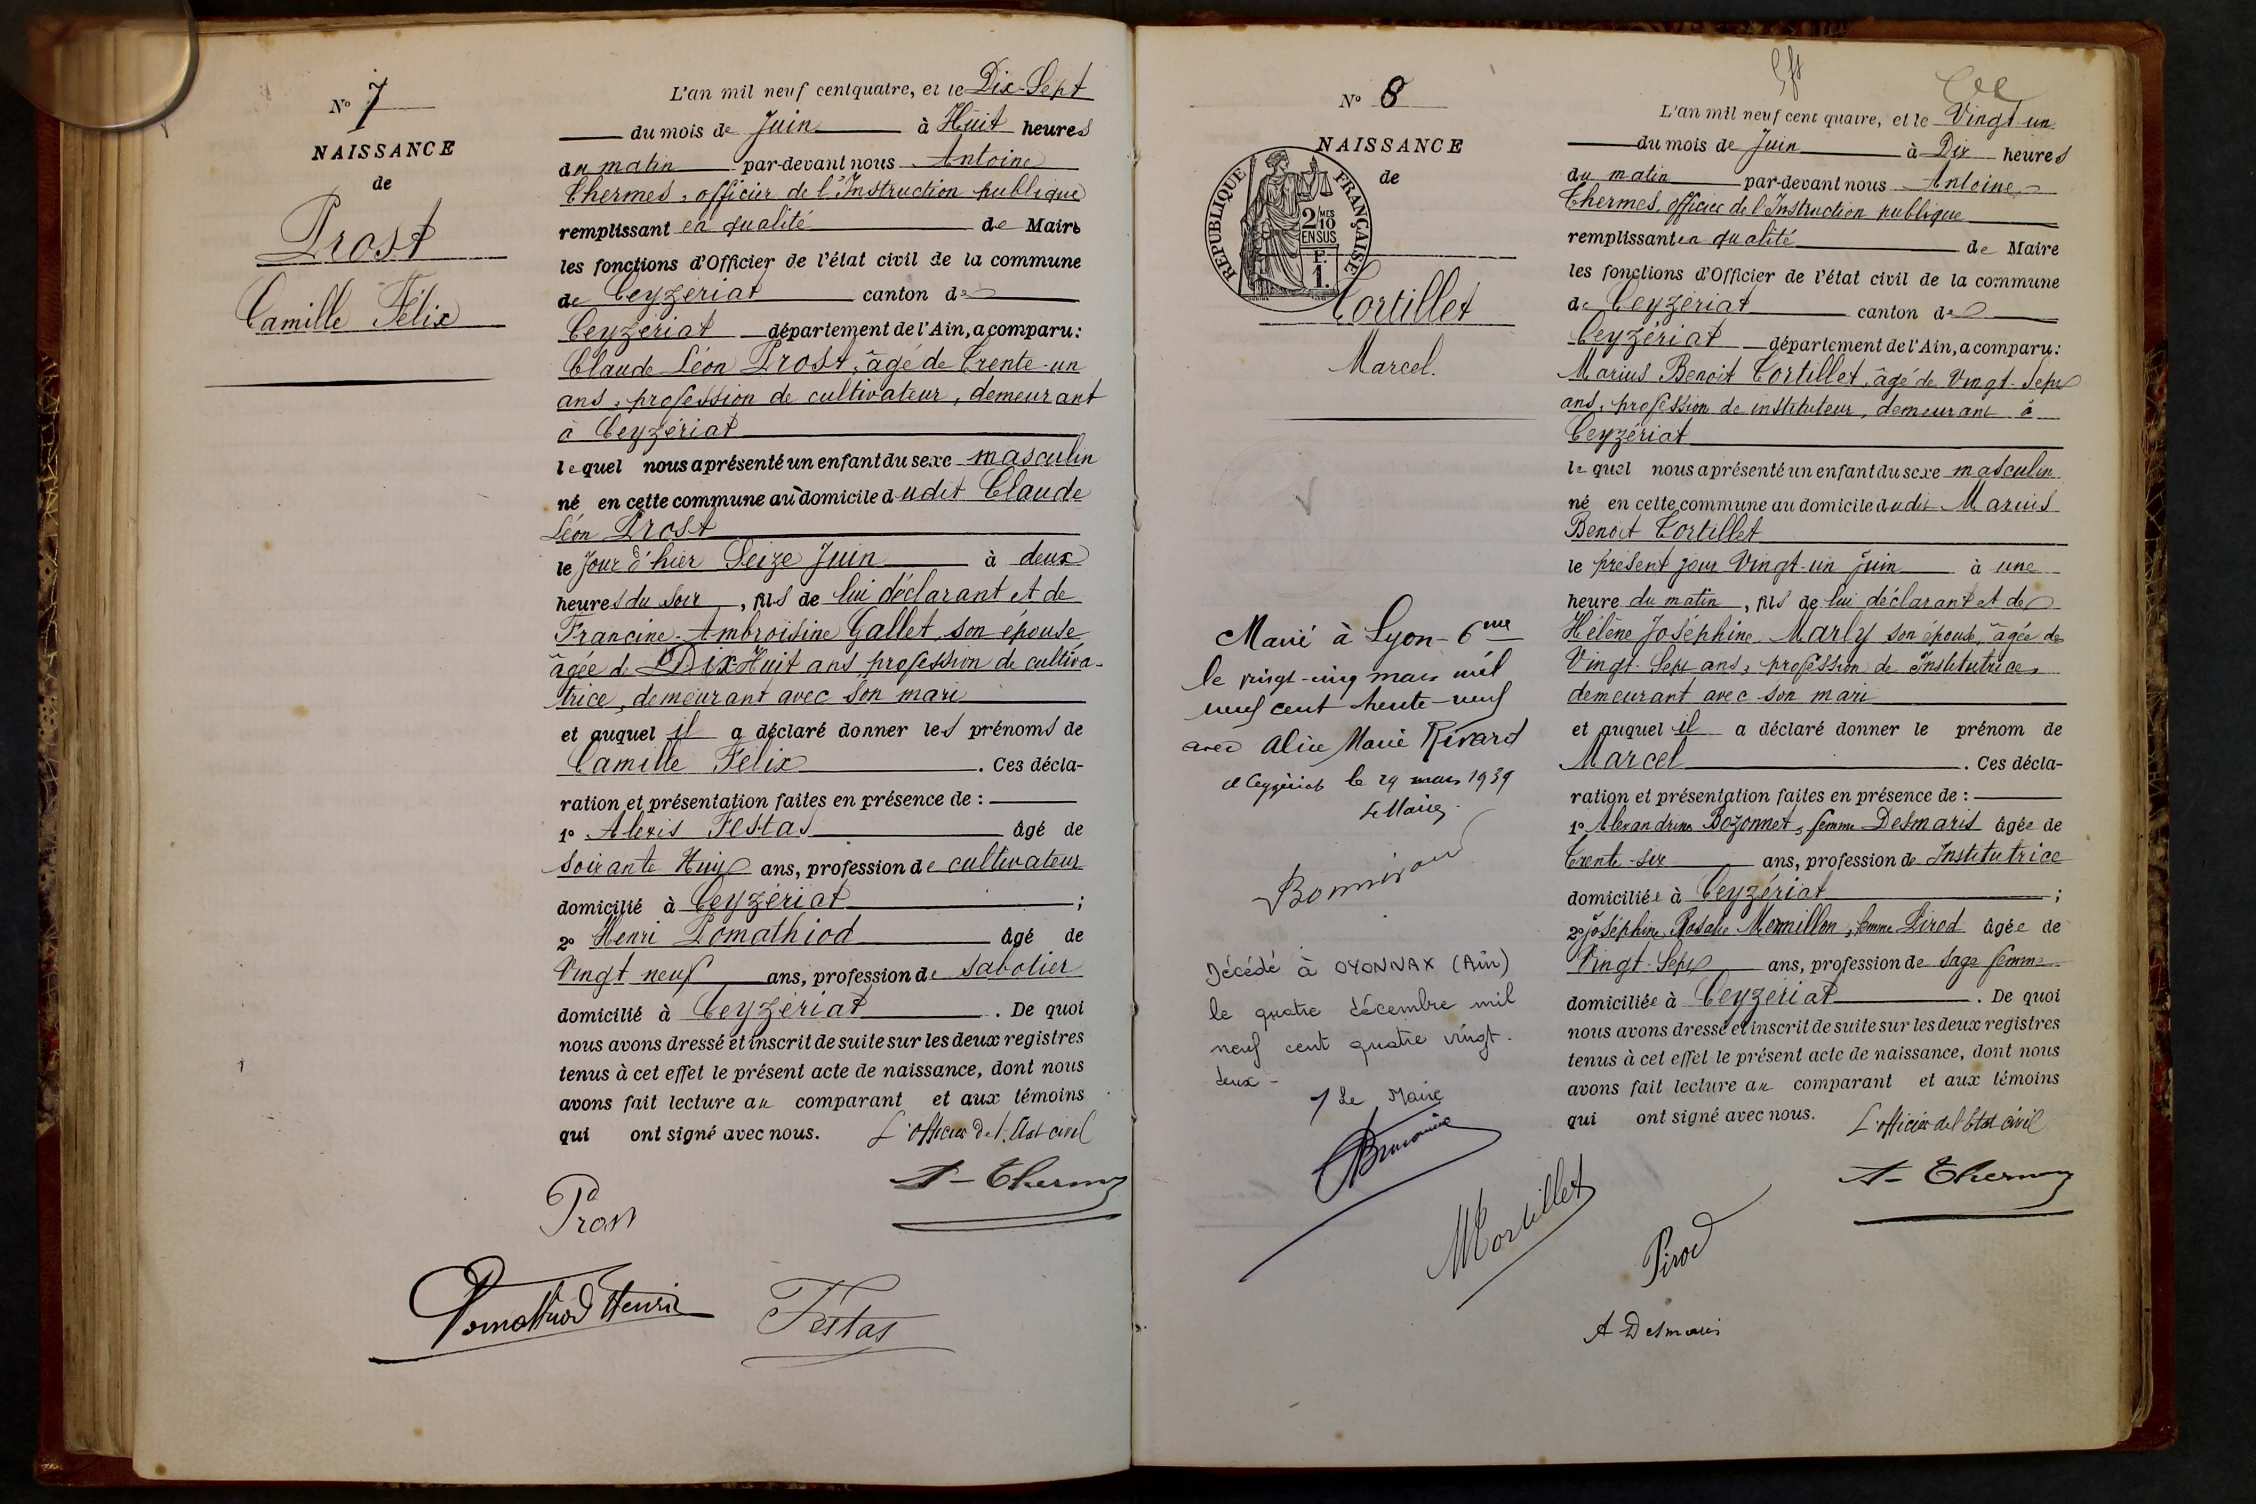 N° 7
NAISSANCE
de
Prost
Camille Félix
L'an mil neuf cent quatre, et le Dix-Sept
du mois de Juin à Huit heures
du matin par-devant nous Antoine
Chermes, officier de l'Instruction publique
remplissant en qualité de Maire
les fonctions d'Officier de l'état civil de la commune
de Ceyzériat canton de
Ceyzériat département de l'Ain, a comparu :
Claude Léon Prost, âgé de Trente-un
ans, profession de cultivateur, demeurant
à Ceyzériat
le quel nous a présenté un enfant du sexe masculin
né en cette commune au domicile dudit Claude
Léon Prost
le Jour d'hier Seize Juin à deux
heures du soir, fils de lui déclarant et de
Francine-Ambroisine Gallet, son épouse,
âgée de Dix-Huit ans, profession de cultiva-
trice, demeurant avec son mari
et auquel il a déclaré donner les prénoms de
Camille Félix. Ces décla-
ration et présentation faites en présence de :
1° Alexis Festas âgé de
soixante Huit ans, profession de cultivateur
domicilié à Ceyzériat ;
2° Henri Pomathiod âgé de
Vingt neuf ans, profession de sabotier
domicilié à Ceyzériat. De quoi
nous avons dressé et inscrit de suite sur les deux registres
tenus à cet effet le présent acte de naissance, dont nous
avons fait lecture au comparant et aux témoins
qui ont signé avec nous. L'officier de l'Etat civil
Prost
A-Chermes
Pomathiod Henri
Festas
N° 8
NAISSANCE
de
REPUBLIQUE FRANÇAISE
2/10 MES
EN SUS
F.
1.
Tortillet
Marcel.
Marié à Lyon-6me
le vingt-cinq mars mil
neuf cent trente-neuf
avec Alice Marie Rivard
à Ceyzériat le 29 mars 1939
Le Maire
Décédé à OYONNAX (Ain)
le quatre décembre mil
neuf cent quatre vingt-
deux -
/ Le Maire
L'an mil neuf cent quatre, et le Vingt-un
du mois de Juin à Dix heures
du matin par-devant nous Antoine
Chermes, officier de l'Instruction publique
remplissant en qualité de Maire
les fonctions d'Officier de l'état civil de la commune
de Ceyzériat canton de
Ceyzériat département de l'Ain, a comparu :
Marius Benoit Tortillet, âgé de Vingt-Sept
ans, profession de instituteur, demeurant à
Ceyzériat
le quel nous a présenté un enfant du sexe masculin
né en cette commune au domicile dudit Marius
Benoit Tortillet
le présent jour Vingt-un juin à une
heure du matin, fils de lui déclarant et de
Hélène Joséphine Marly son épouse, âgée de
Vingt-Sept ans, profession de Institutrice,
demeurant avec son mari
et auquel il a déclaré donner le prénom de
Marcel. Ces décla-
ration et présentation faites en présence de :
1° Alexandrine Bozonnet, femme Desmaris âgée de
Trente-six ans, profession de Institutrice
domiciliée à Ceyzériat ;
2° Joséphine Rosalie Mermillon, femme Pirod âgée de
Vingt-Sept ans, profession de sage femme
domiciliée à Ceyzériat. De quoi
nous avons dressé et inscrit de suite sur les deux registres
tenus à cet effet le présent acte de naissance, dont nous
avons fait lecture au comparant et aux témoins
qui ont signé avec nous. L'officier de l'Etat civil
A-Chermes
MTortillet
Pirod
A Desmaris